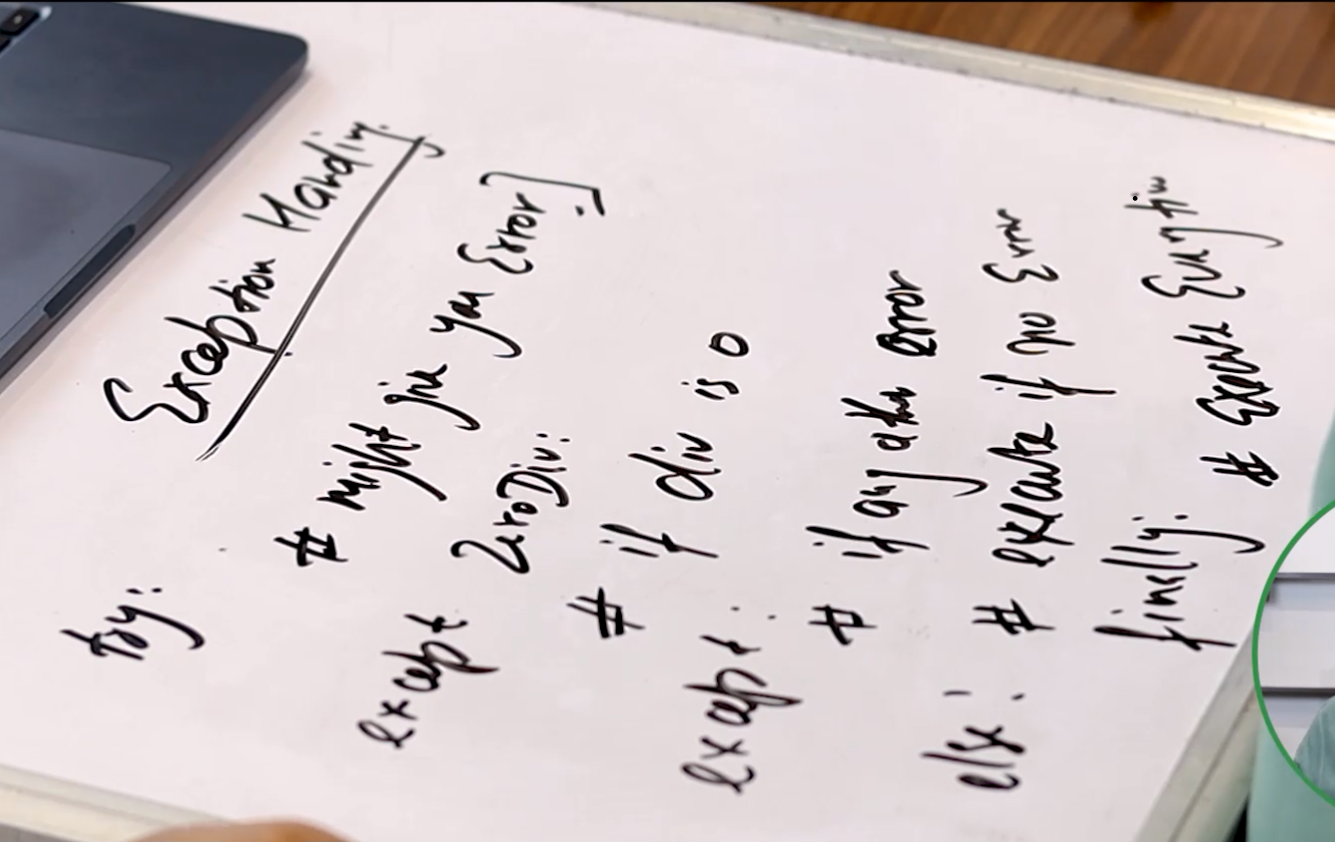 Exception Handing
try:
# might give you Error]
except ZeroDiv:
# if div is 0
except:
# if any other error
else: # execute if no Error
finally: # Execute